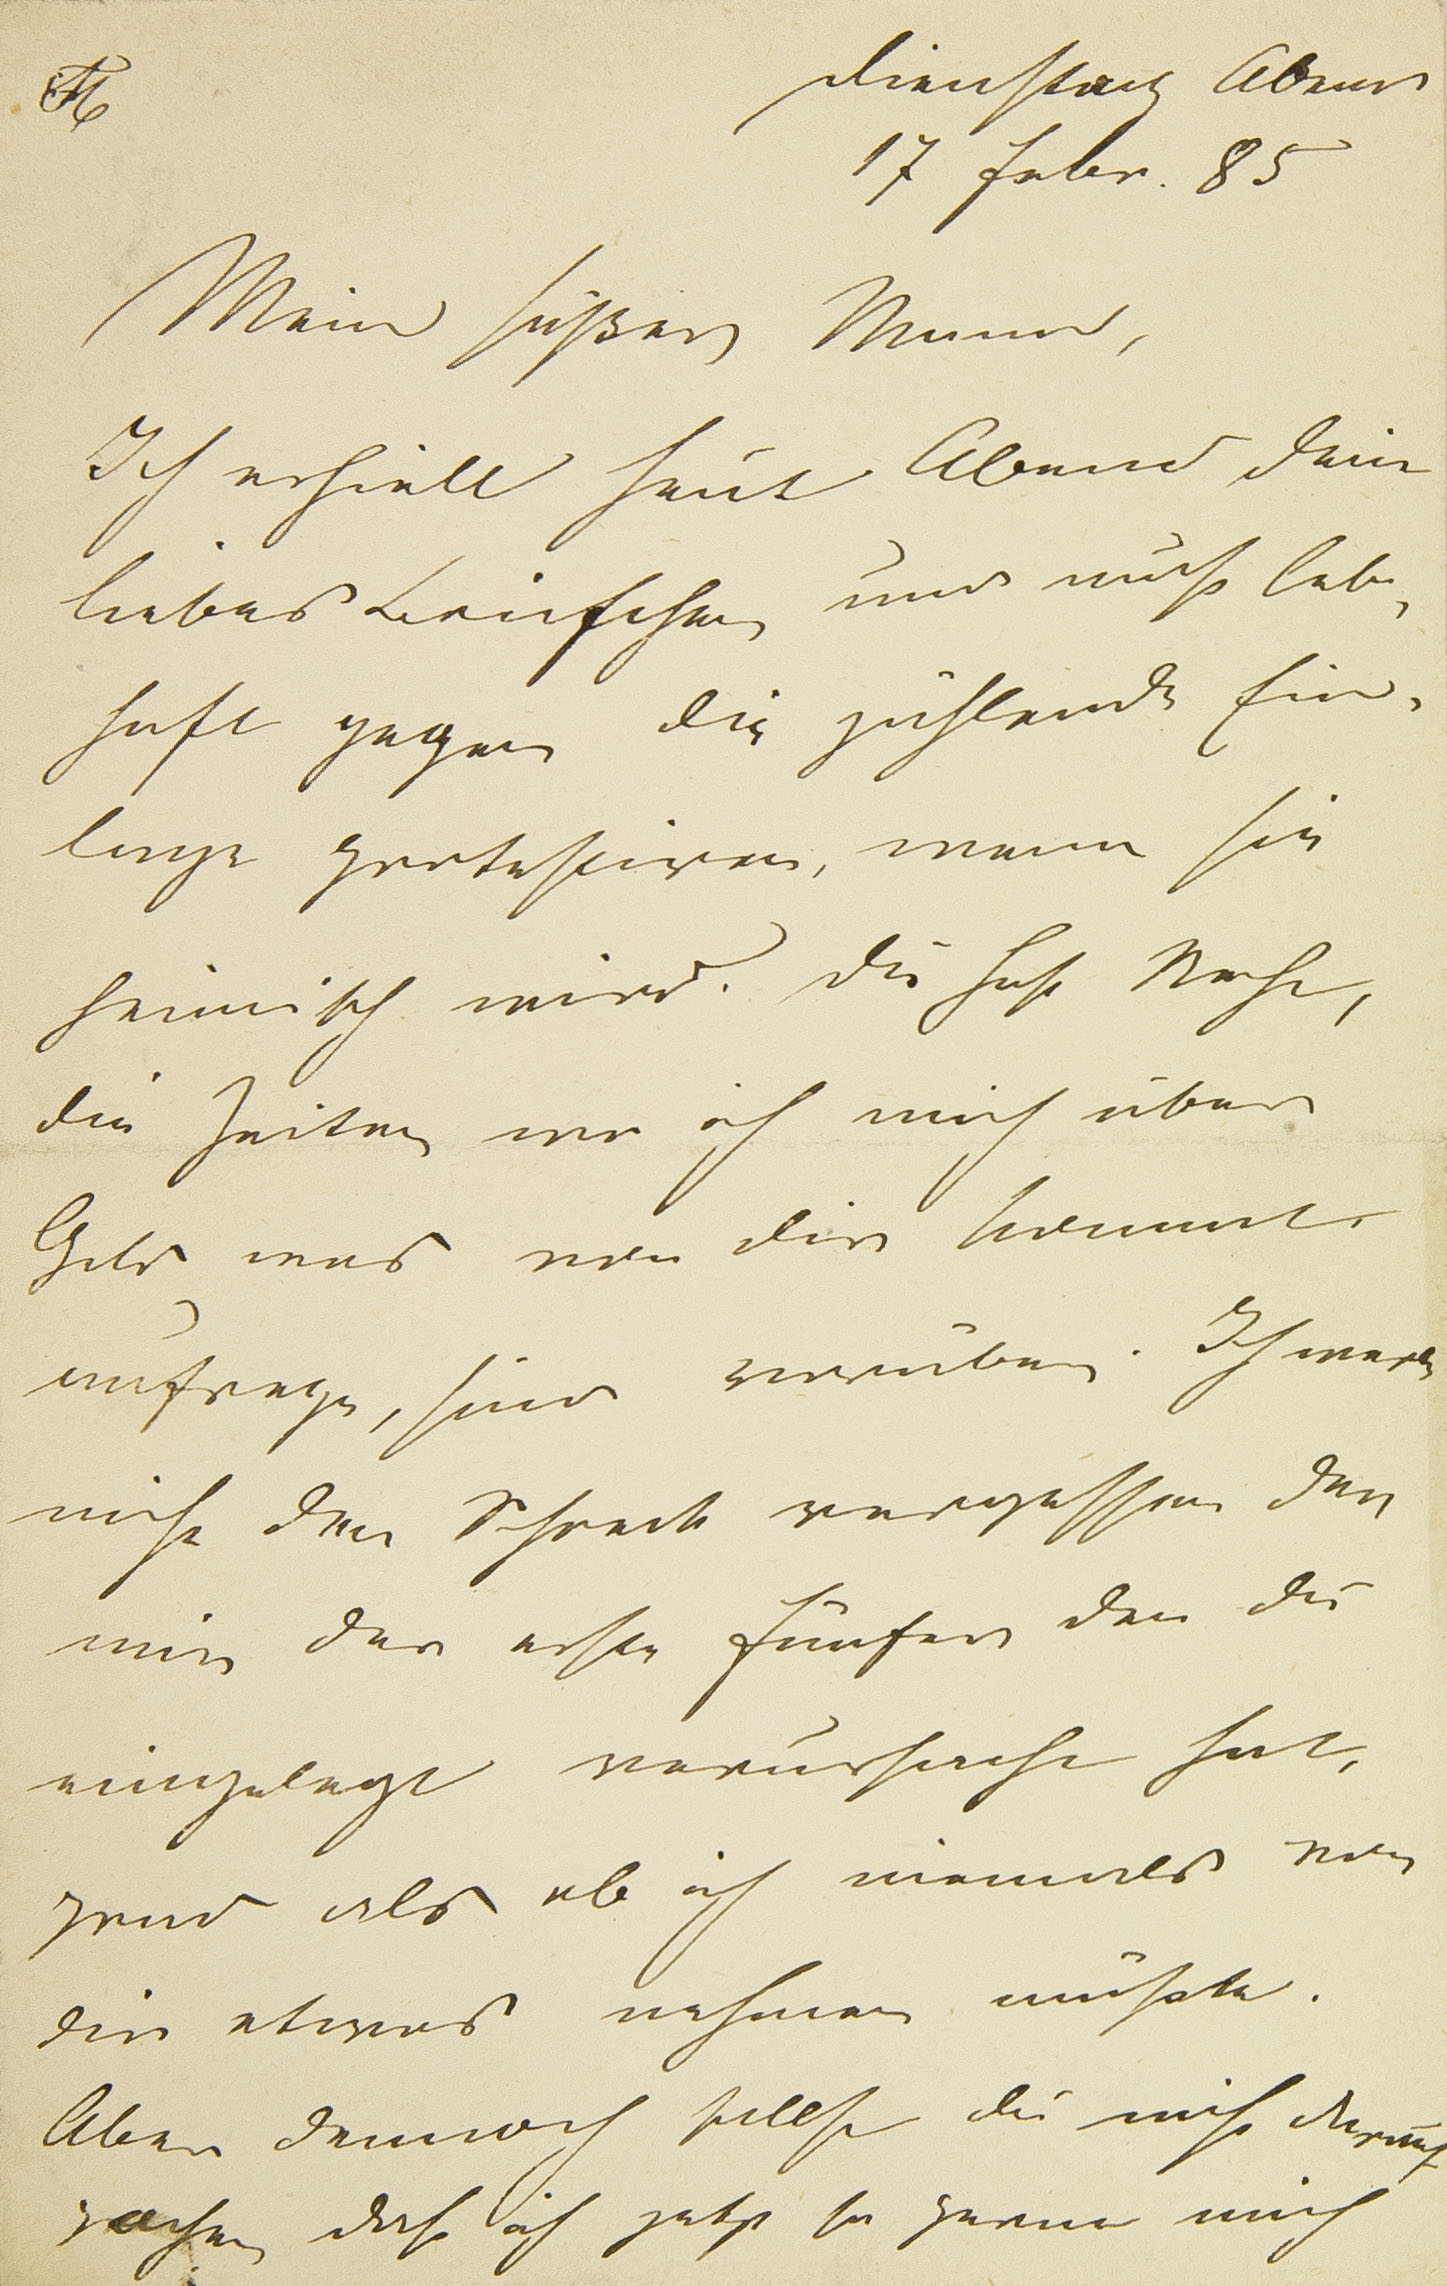 Dienstag Abend
17 Febr. 85
Mein süßer Mann,
Ich erhielt heut Abend dein
liebes Briefchen und muß leb-
haft gegen die zählende Ein-
lage protestiren, wenn sie
heimisch wird. Du hast Recht,
die Zeiten wo ich mich über
Geld was von dir kommt
aufrege, sind vorüber. Ich werde
nicht den Schreck vergessen den
mir der erste Fünfer den du
eingelegt verursacht hat,
grad als ob ich niemals von
dir etwas nehmen müßte.
Aber dennoch sollst du nicht darauf
pochen daß ich jetzt so gerne mich